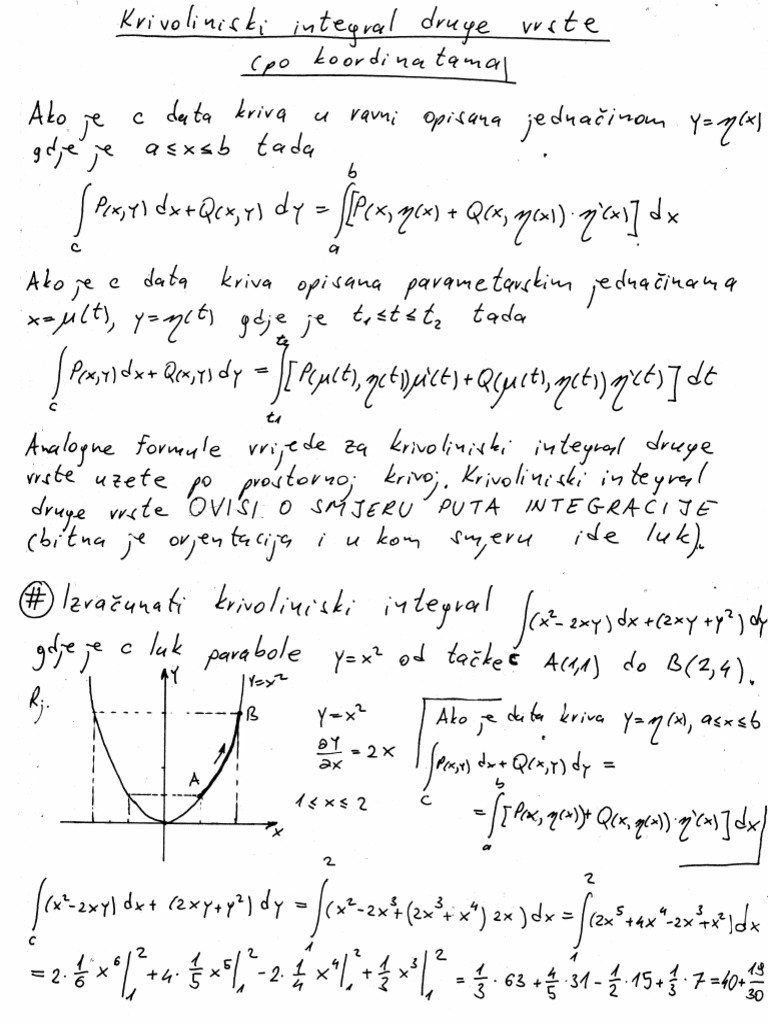 Krivoliniski integral druge vrste
(po koordinatama)
Ako je c data kriva u ravni opisana jednačinom y=η(x)
gdje je a≤x≤b tada
∫_c P(x,y) dx+Q(x,y) dy = ∫_a^b [P(x, η(x) + Q(x, η(x))·η'(x)] dx
Ako je c data kriva opisana parametarskim jednačinama
x=μ(t), y=η(t) gdje je t₁≤t≤t₂ tada
∫_c P(x,y)dx+Q(x,y)dy = ∫_t1^t2 [P(μ(t),η(t))μ'(t)+Q(μ(t),η(t))η'(t)] dt
Analogne formule vrijede za krivoliniski integral druge
vrste uzete po prostornoj krivoj. Krivoliniski integral
druge vrste OVISI O SMJERU PUTA INTEGRACIJE
(bitna je orjentacija i u kom smjeru ide luk).
# Izračunati krivoliniski integral ∫_c (x²-2xy)dx+(2xy+y²)dy
gdje je c luk parabole y=x² od tačke A(1,1) do B(2,4).
Rj.
y
y=x²
B
A
x
y=x²
∂y/∂x = 2x
1≤x≤2
Ako je data kriva y=η(x), a≤x≤b
∫_c P(x,y) dx+Q(x,y) dy =
= ∫_a^b [P(x, η(x))+Q(x, η(x))·η'(x)] dx
∫_c (x²-2xy) dx + (2xy+y²) dy = ∫_1^2 (x²-2x³+(2x³+x⁴) 2x) dx = ∫_1^2 (2x⁵+4x⁴-2x³+x²)dx
= 2·1/6 x⁶|_1^2 + 4·1/5 x⁵|_1^2 - 2·1/4 x⁴|_1^2 + 1/3 x³|_1^2 = 1/3·63+4/5·31-1/2·15+1/3·7=40+19/30